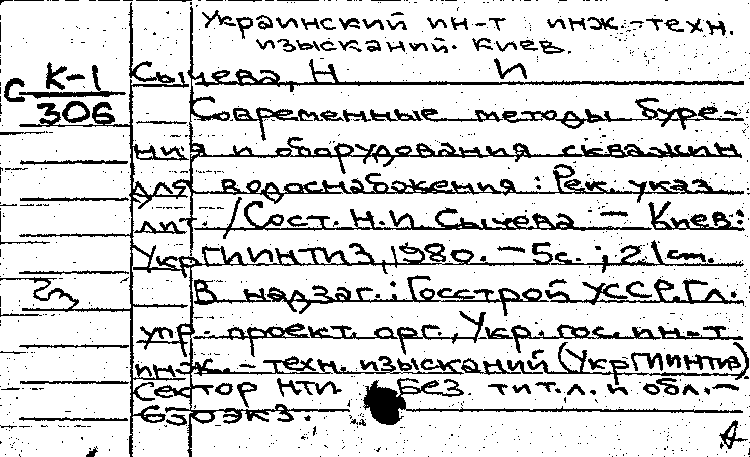 Украинский ин-т инж.-техн.
изысканий. Киев.
С К-1 Сычева, Н И
306 Современные методы буре-
ния и оборудования скважин
для водоснабжения: Рек. указ
лит. /Сост. Н.И. Сычева - Киев:
УкрГИИНТИЗ, 1980. - 5с.; 21см.
В надзаг.: Госстрой УССР. Гл.
упр. проект. орг., Укр. гос. ин-т
инж. - техн. изысканий (УкрГИИНТИЗ)
Сектор НТИ. Без тит. л. и обл. -
650экз.